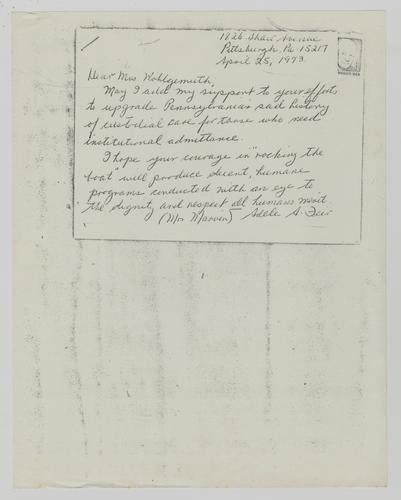 1826 Shaw Avenue
Pittsburgh, Pa. 15217
April 25, 1973.
Dear Mrs. Wohlgemuth,
May I add my support to your efforts
to upgrade Pennsylvania's sad history
of custodial care for those who need
institutional admittance.
I hope your courage in "rocking the
boat" will produce decent, humane
programs conducted with an eye to
the dignity and respect all humans merit.
(Mrs. Marvin) Adele A.